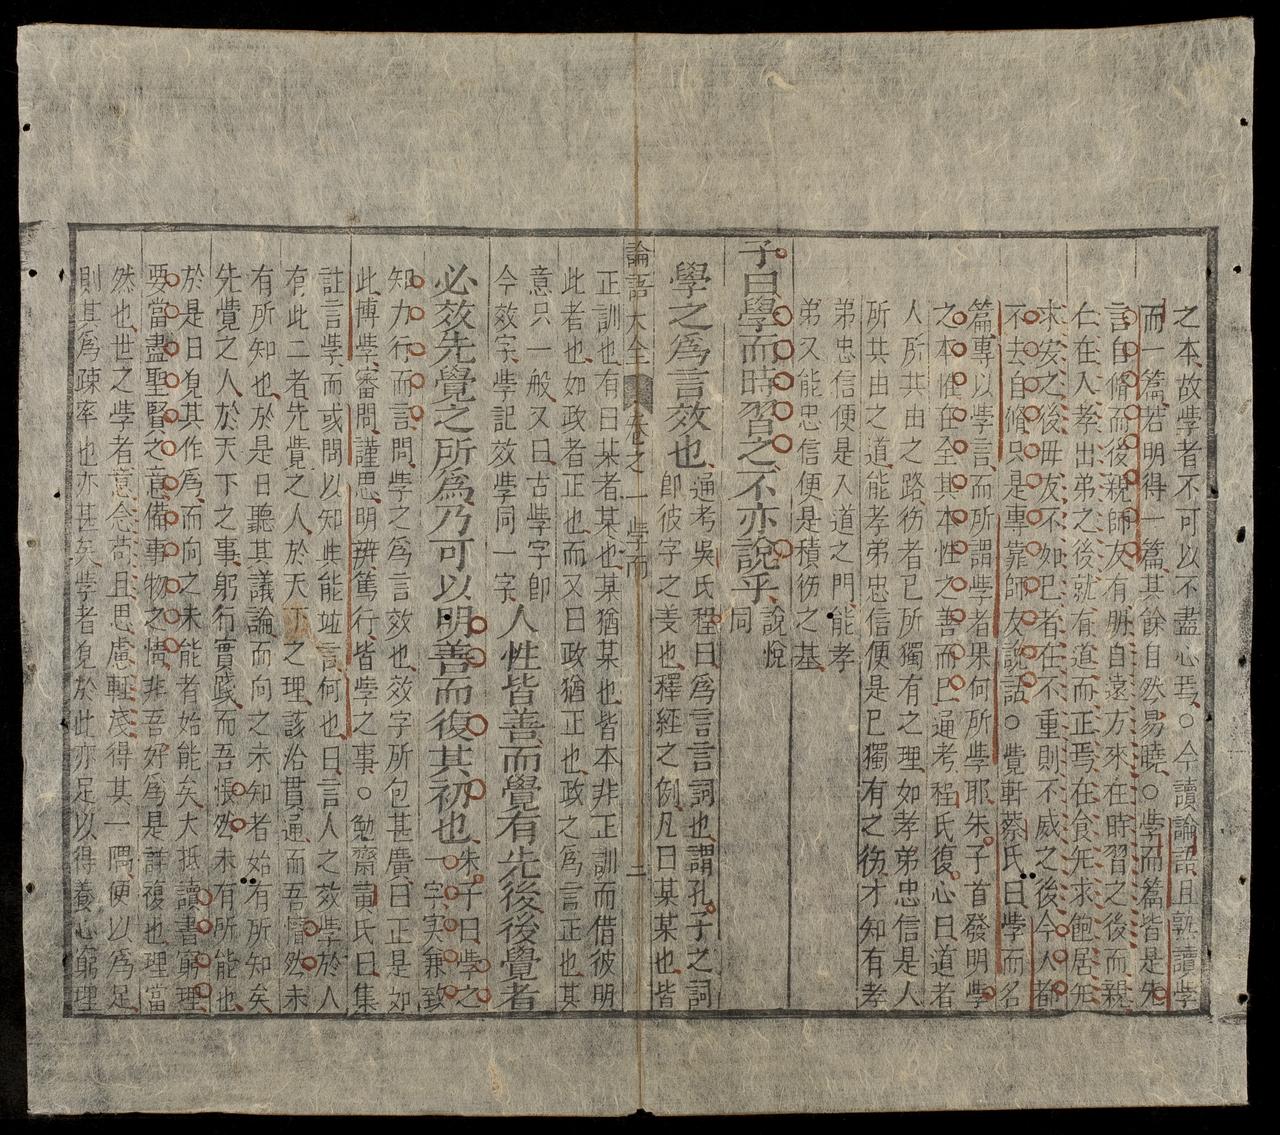 之本故學者不可以不盡心焉○今讀論語且熟讀學
而一篇若明得一篇其餘自然易曉○學而篇皆是先
言自脩而後親師友有朋自遠方來在時習之後而親
仁在入孝出弟之後就有道而正焉在食无求飽居无
求安之後毋友不如已者在不重則不威之後今人都
不去自脩只是專靠師友說話○覺軒蔡氏曰學而名
篇專以學言而所謂學者果何所學耶朱子首發明學
之本惟在全其本性之善而已通考程氏復心曰道者
人所共由之路德者已所獨有之理如孝弟忠信是人
所共由之道能孝弟忠信便是已獨有之德才知有孝
弟忠信便是入道之門能孝
弟又能忠信便是積德之基
子曰學而時習之不亦說乎說悅同
學之為言效也通考吳氏程曰為言言詞也謂孔子之詞
即彼字之義也釋經之例凡曰某某也皆
論語大全 卷之一 學而 二
正訓也有曰某者某也某猶某也皆本非正訓而借彼明
此者也如政者正也而又曰政猶正也政之為言正也其
意只一般又曰古學字即
今效字學記效學同一字人性皆善而覺有先後後覺者
必效先覺之所為乃可以明善而復其初也朱子曰學之
一字實兼致
知力行而言問學之為言效也效字所包甚廣曰正是如
此博學審問謹思明辨篤行皆學之事○勉齋黃氏曰集
註言學而或問以知與能並言何也曰言人之效學於人
有此二者先覺之人於天下之理該洽貫通而吾懵然未
有所知也於是日聽其議論而向之未知者始有所知矣
先覺之人於天下之事躬行實踐而吾悵然未有所能也
於是日見其作為而向之未能者始能矣大抵讀書窮理
要當盡聖賢之意備事物之情非吾好為是詳復也理當
然也世之學者意念苟且思慮輕淺得其一隅便以為足
則其為疎率也亦甚矣學者見於此亦足以得養心窮理